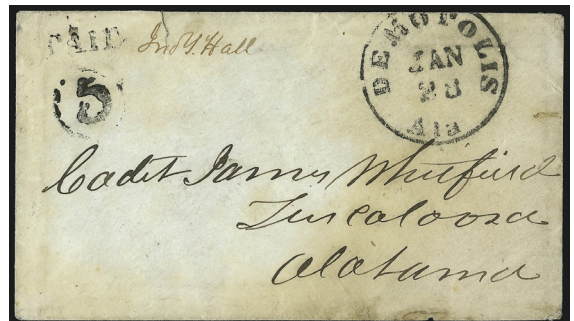 PAID
5
Jno Y. Hall
DEMOPOLIS
JAN
28
Ala
Cadet James Whitfield
Tuscaloosa
Alabama